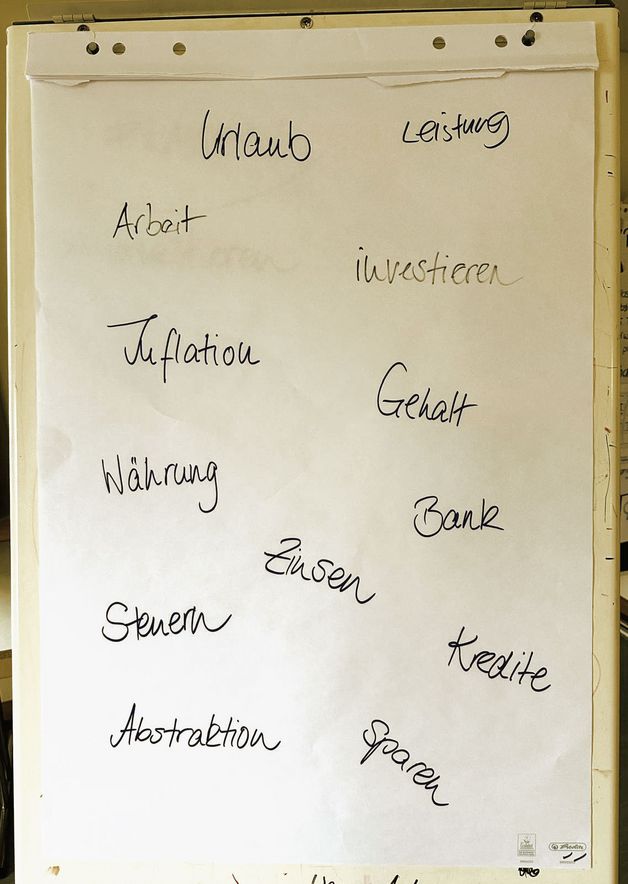 Urlaub
Leistung
Arbeit
investieren
Inflation
Gehalt
Währung
Bank
Zinsen
Steuern
Kredite
Abstraktion
Sparen